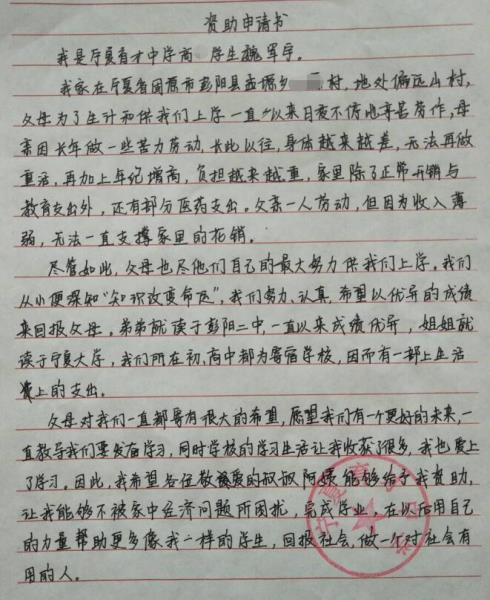 资助申请书
我是宁夏育才中学高 学生魏军宇。
我家在宁夏省固原市彭阳县孟塬乡 村,地处偏远山村,
父母为了生计和供我们上学一直以来日夜不停地辛苦劳作,母
亲因长年做一些苦力劳动,长此以往,身体越来越差,无法再做
重活,再加上年纪增高,负担越来越重,家里除了正常开销与
教育支出外,还有部分医药支出。父亲一人劳动,但因为收入薄
弱,无法一直支撑家里的花销。
尽管如此,父母也尽他们自己的最大努力供我们上学,我们
从小便深知“知识改变命运”,我们努力、认真,希望以优异的成绩
来回报父母,弟弟就读于彭阳二中,一直以来成绩优异,姐姐就
读于宁夏大学,我们所在初、高中都为寄宿学校,因而有一部上生活
费上的支出。
父母对我们一直都寄有很大的希望,愿望我们有一个更好的未来,一
直教导我们要发奋学习,同时学校的学习生活让我收获了很多,我也爱上
了学习。因此,我希望各位敬爱的叔叔阿姨能够给予我资助,
让我能够不被家中经济问题所困扰,完成学业,在以后用自己
的力量帮助更多像我一样的学生,回报社会,做一个对社会有
用的人。